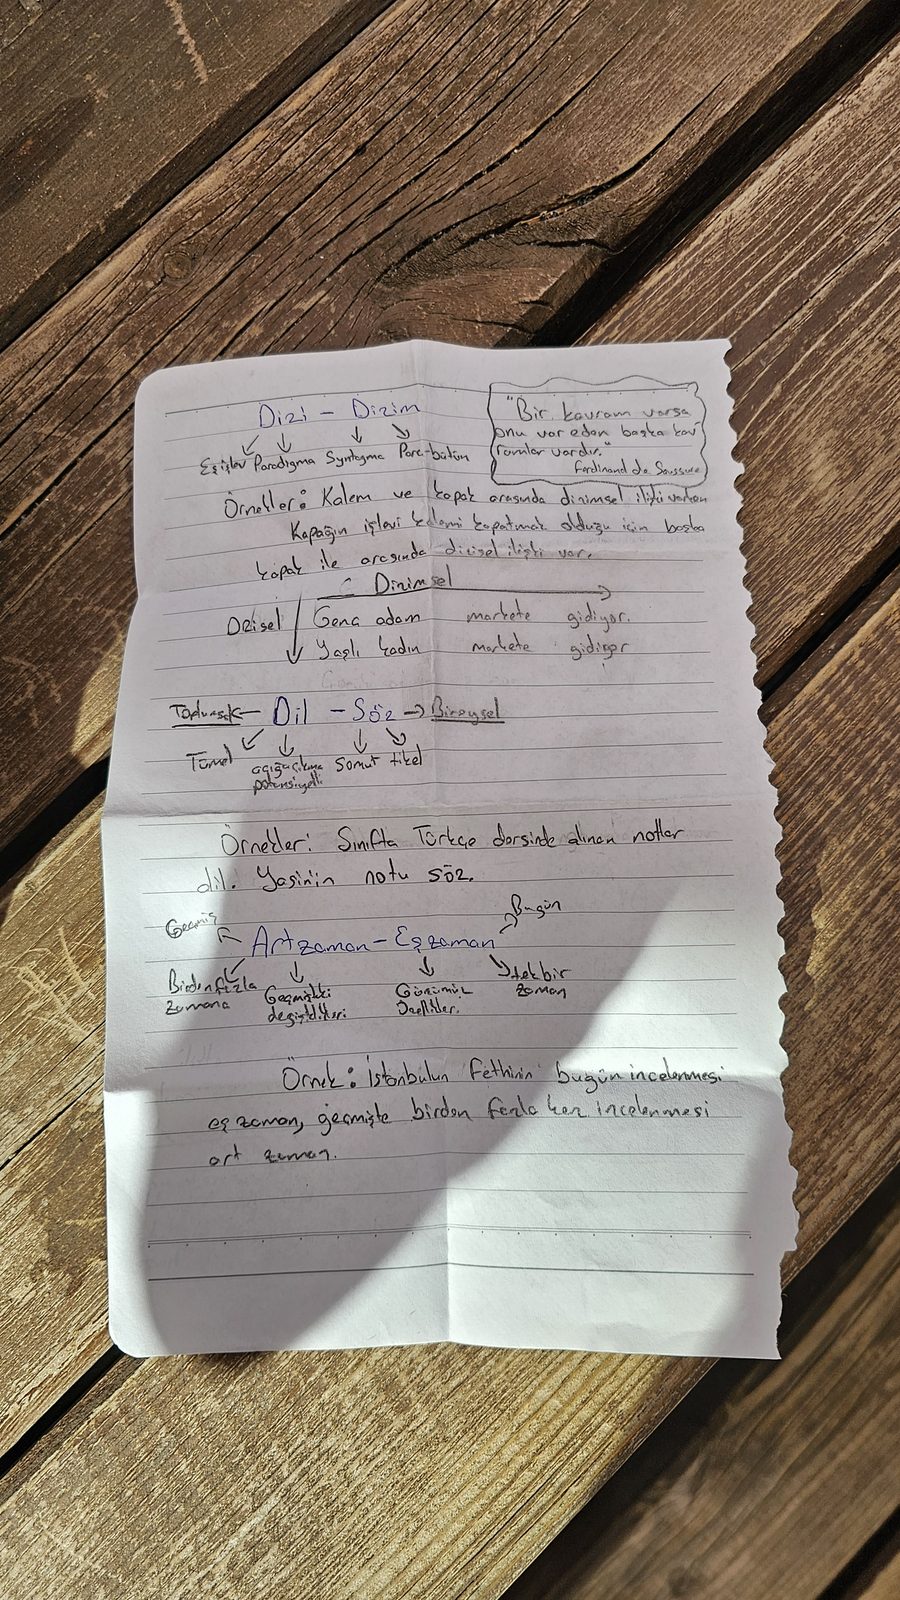 Dizi - Dizim
Eşişlev Paradigma Syntagma Parç-bütün
"Bir kavram varsa
onu var eden başka kav
ramlar vardır."
Ferdinand de Saussure
Örnekler: Kalem ve kapak arasında dizimsel ilişki varken
Kapağın işlevi kalemi kapatmak olduğu için başka
kapak ile arasında dizisel ilişki var.
Dizimsel
Dizisel Genç adam markete gidiyor.
Yaşlı kadın markete gidiyor
Toplumsal Dil - Söz Bireysel
Tümel açığa çıkma Somut tikel
potansiyelli
Örnekler: Sınıfta Türkçe dersinde alınan notlar
dil. Yasin'in notu söz.
Geçmiş Artzaman - Eşzaman Bugün
Birden fazla Geçmişteki Günümüz tek bir
zamana değişiklikleri özellikler. zaman
Örnek: İstanbulun Fethinin bugün incelenmesi
eş zaman, geçmişte birden fazla kez incelenmesi
art zaman.